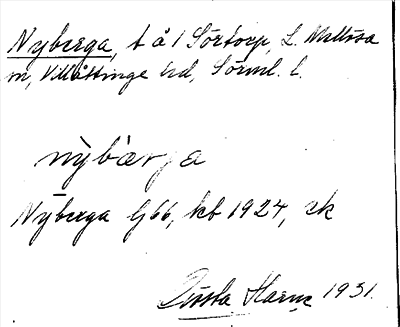 Nyberga, t å 1 Sörtorp, L. Mellösa
sn, Villåttinge hd, Sörml. l.
nỳbær ja
Nyberga G66, kb 1924, ek
Gösta Harne 1931.